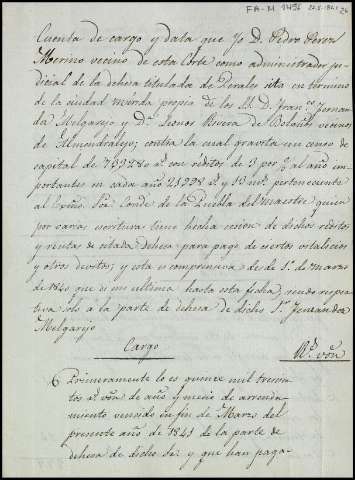 FA-M 1496
Cuenta de cargo y data que Yo D. Pedro Perez
Merino vecino de esta Corte como administrador ju-
dicial de la dehesa titulada de Perales sita en termino
de la ciudad propia de los SS. D. Fran.co Fernan-
da Melgarejo y D.a Leonor Rivera de Bolaños vecinos
de Almendralejo; contra la cual gravita un censo de
capital de rs con reditos de 3 por % al año im-
portantes en cada año 21998 rs y 13 mrs perteneciente
al Exmo. Sor. Conde de la Puebla del Maestre quien
por varias escrituras tiene hecha cesion de dichos reditos
y rentas de citada dehesa para pago de ciertos vitalicios
y otros devitos; y esta es comprensiva desde 1.o de marzo
de 1840 que es mi ultima hasta esta fecha, siendo respec-
tiva solo a la parte de dehesa de dicho Sr. Fernandez
Melgarejo
Cargo
Rs. von
Primeramente lo es quince mil trecien-
tos rs. von de año y medio de arrenda-
miento vencido en fin de Marzo del
presente año de 1841 de la parte de
dehesa de dicho Sr. y que han paga-